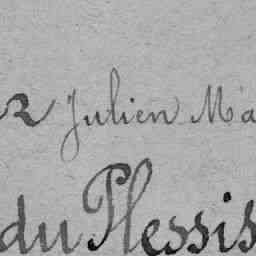 2 Julien Ma
du Plessis